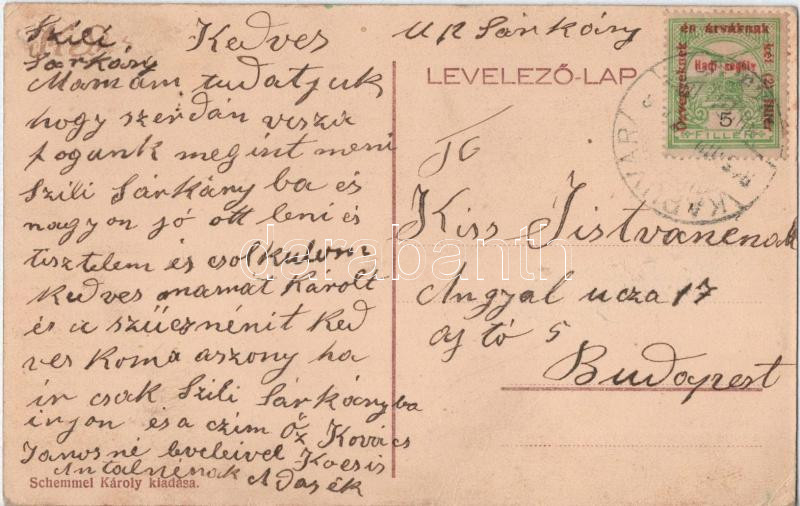 Szili Kedves U P Sárkány
Sárkány
Mamám tudatjuk
hogy szerdán vissza
fogunk megint meni
Szili Sárkány ba és
nagyon jó ott leni és
tisztelem és csolkulom
kedves mamat Károlt
és a szücznénit Ked
ves Koma aszony ha
ir csak Szili Sárkányba
irjon és a czim Őz Kovács
Janosné leveleivel Kocsis
Antalnénak
Schemmel Károly kiadása.
LEVELEZŐ-LAP
Kiss Jistvánénak
Angyal ucza 17
ajtó 5
Budapest
Özvegyeknek és árváknak két (2) fillér
Hadi segély
5
FILLÉR
KAPUVÁR
darabanth